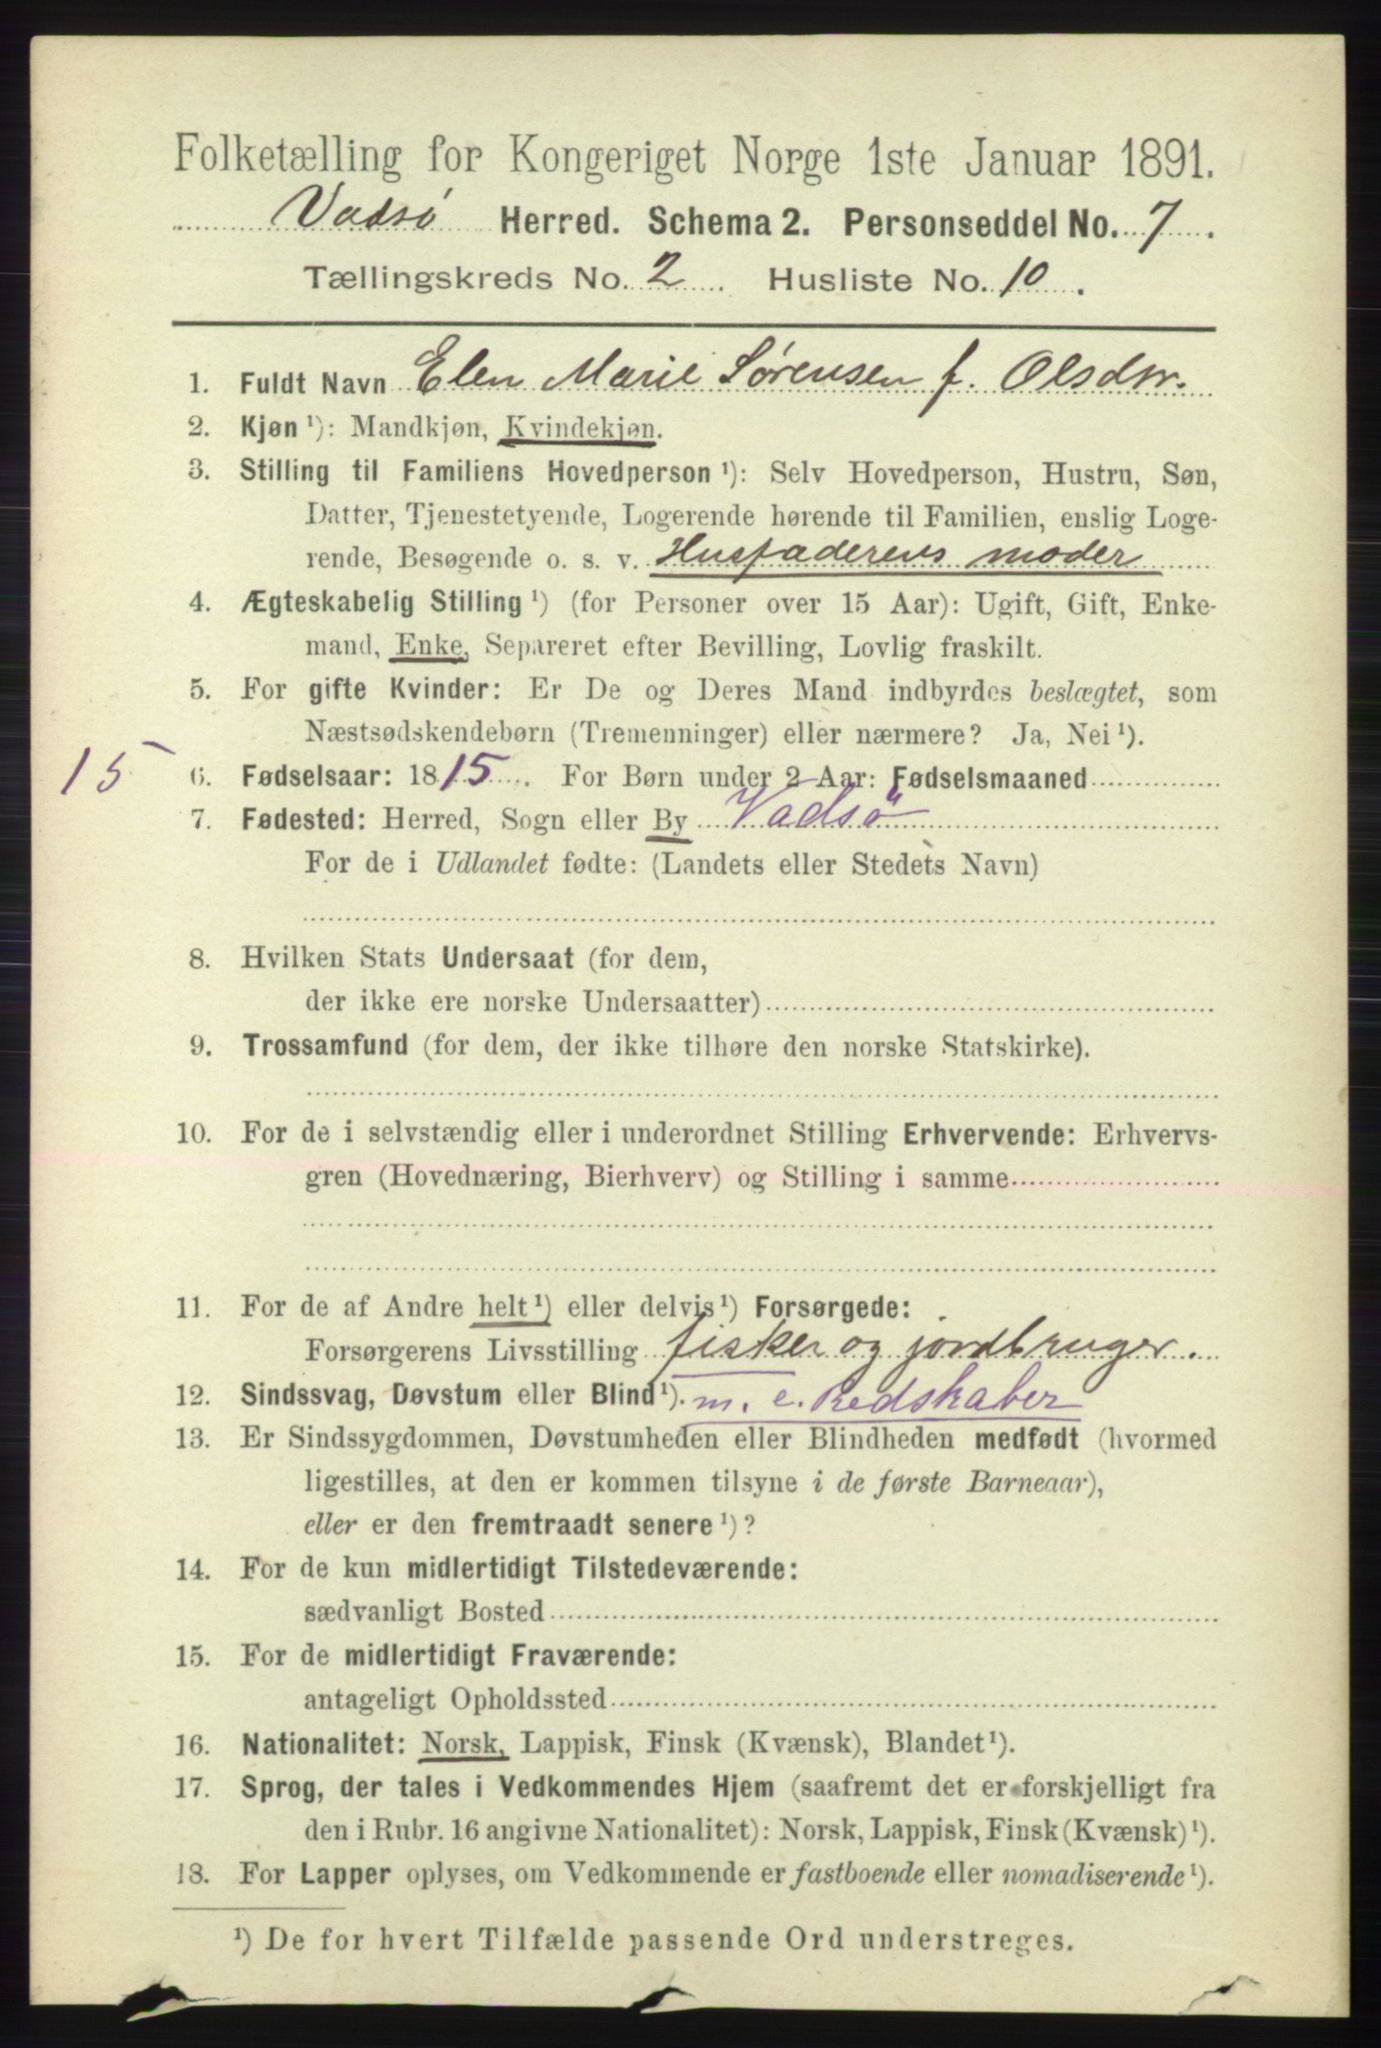 Folketælling for Kongeriget Norge 1ste Januar 1891.
Vadsø Herred. Schema 2. Personseddel No. 7.
Tællingskreds No. 2 Husliste No. 10.
1. Fuldt Navn Elen Marie Sørensen f. Olsdtr.
2. Kjøn ¹): Mandkjøn, Kvindekjøn.
3. Stilling til Familiens Hovedperson ¹): Selv Hovedperson, Hustru, Søn,
Datter, Tjenestetyende, Logerende hørende til Familien, enslig Loge-
rende, Besøgende o. s. v. Husfaderens moder
4. Ægteskabelig Stilling ¹) (for Personer over 15 Aar): Ugift, Gift, Enke-
mand, Enke, Separeret efter Bevilling, Lovlig fraskilt.
5. For gifte Kvinder: Er De og Deres Mand indbyrdes beslægtet, som
Næstsødskendebørn (Tremenninger) eller nærmere? Ja, Nei ¹).
15 6. Fødselsaar: 1815. For Børn under 2 Aar: Fødselsmaaned
7. Fødested: Herred, Sogn eller By Vadsø
For de i Udlandet fødte: (Landets eller Stedets Navn)
8. Hvilken Stats Undersaat (for dem,
der ikke ere norske Undersaatter)
9. Trossamfund (for dem, der ikke tilhøre den norske Statskirke).
10. For de i selvstændig eller i underordnet Stilling Erhvervende: Erhvervs-
gren (Hovednæring, Bierhverv) og Stilling i samme
11. For de af Andre helt ¹) eller delvis ¹) Forsørgede:
Forsørgerens Livsstilling fisker og jordbruger.
12. Sindssvag, Døvstum eller Blind ¹). m. e. Redskaber
13. Er Sindssygdommen, Døvstumheden eller Blindheden medfødt (hvormed
ligestilles, at den er kommen tilsyne i de første Barneaar),
eller er den fremtraadt senere ¹)?
14. For de kun midlertidigt Tilstedeværende:
sædvanligt Bosted
15. For de midlertidigt Fraværende:
antageligt Opholdssted
16. Nationalitet: Norsk, Lappisk, Finsk (Kvænsk), Blandet ¹).
17. Sprog, der tales i Vedkommendes Hjem (saafremt det er forskjelligt fra
den i Rubr. 16 angivne Nationalitet): Norsk, Lappisk, Finsk (Kvænsk) ¹).
18. For Lapper oplyses, om Vedkommende er fastboende eller nomadiserende ¹).
¹) De for hvert Tilfælde passende Ord understreges.